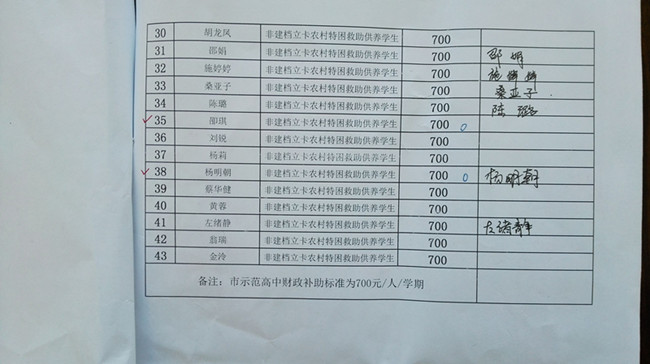 30 胡龙凤 非建档立卡农村特困救助供养学生 700
31 邵娟 非建档立卡农村特困救助供养学生 700 邵娟
32 施婷婷 非建档立卡农村特困救助供养学生 700 施婷婷
33 桑亚子 非建档立卡农村特困救助供养学生 700 桑亚子
34 陈璐 非建档立卡农村特困救助供养学生 700 陈璐
35 邵琪 非建档立卡农村特困救助供养学生 700 0
36 刘锐 非建档立卡农村特困救助供养学生 700
37 杨莉 非建档立卡农村特困救助供养学生 700
38 杨明朝 非建档立卡农村特困救助供养学生 700 0 杨明朝
39 蔡华健 非建档立卡农村特困救助供养学生 700
40 黄蓉 非建档立卡农村特困救助供养学生 700
41 左绪静 非建档立卡农村特困救助供养学生 700 左绪静
42 翁瑞 非建档立卡农村特困救助供养学生 700
43 金泠 非建档立卡农村特困救助供养学生 700
备注：市示范高中财政补助标准为700元/人/学期